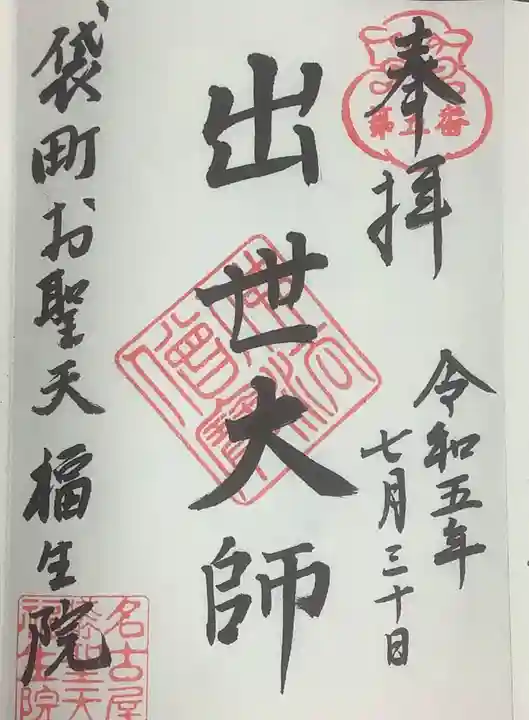 奉拝
第五番
令和五年
七月三十日
出世大師
袋町お聖天 福生院
名古屋
袋聖天
福生院